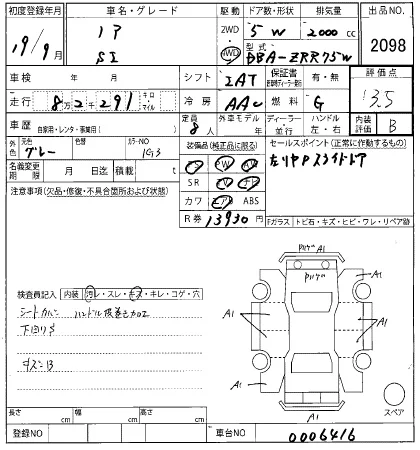 初度登録年月 車名・グレード 駆動 ドア数・形状 排気量 出品NO.
19/9月 ノア SI 2WD 4WD 5 W 2000 cc 2098
型式 DBA-ZRR75W
車検 年 月 シフト IAT 保証書 有・無 評価点
走行 8万2千291 キロ・マイル 冷房 AAC 燃料 G 3.5
車歴 自家用・レンタ・事業用( ) 定員 8人 外車モデル 年 ディーラー・並行 ハンドル 左・右 内装評価 B
外色 元色 グレー 色替 カラーNO 1G3 装備品(純正品に限る) セールスポイント(正常に作動するもの)
名義変更期限 月 日迄 積載 t 左リヤPスライドドア
SR
カワ エアB ABS
注意事項(欠品・修復・不具合箇所および状態) R券 13930円
Fガラス トビ石・キズ・ヒビ・ワレ・リペア跡
A1
Pハゲ
Pハゲ
A1 A1
検査員記入 内装 汚レ・スレ・キズ・キレ・コゲ・穴
シートカバー ハンドル
A1 A1
下回りS
A1 A1
スペア
A1
長さ cm 幅 cm 高さ cm
登録NO 車台NO 0006416